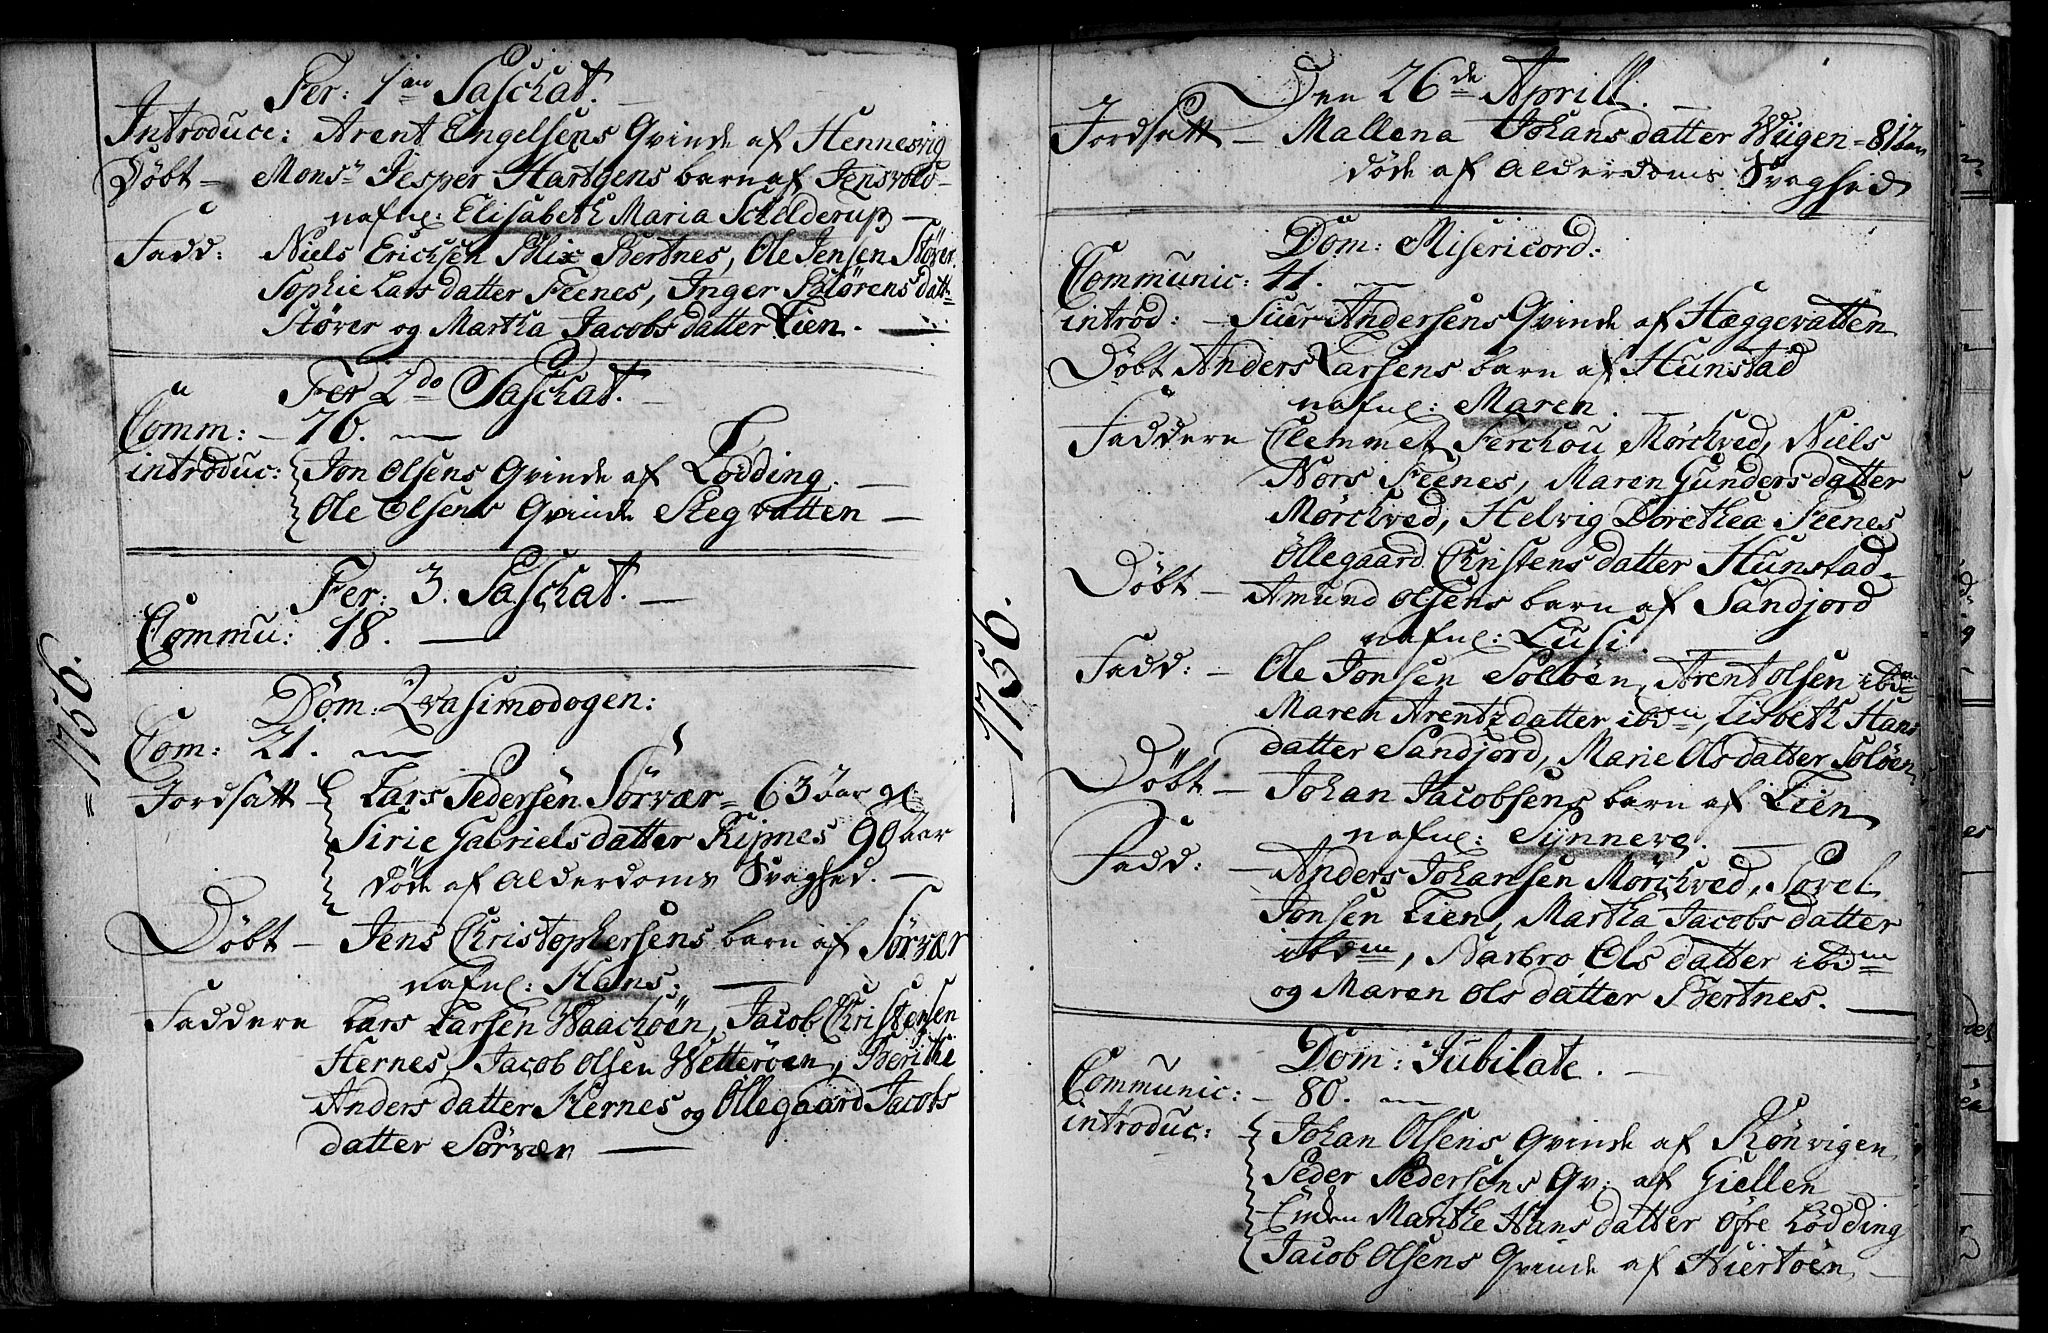 =1756.
Fer: 1ma Paschat.
Introduce: Arent Engelsens Qvinde af Hennesvig
Døbt – Monsr Jesper Hartgens barn af Jensvold
nafnl: Elisabeth Maria Schelderup
Fadd: Niels Erichsen Blix Bertnes, Ole Jensen Støver
Sophie Lars datter Feenes, Inger Sørens datt=
Støver og Martha Jacobs datter Lien.
Fer 2do Paschat.
Comm: – 76.
introduc: Jon Olsens Qvinde af Lødding.
Ole Olsens Qvinde Stegvatten
Fer: 3. Paschat.
Commu: 18.
Dom: Qvasimodogen:
Com: 21.
Jordsatt – Lars Pedersen Sørvær = 63 aar og
Sirie Gabriels datter Ripnes 90 aar
døde af Alderdoms Svaghed.
Døbt – Jens Christophersens barn af Sørvær
nafnl: Hans.
Faddere Lars Larsen Waachøen, Jacob Christensen
Hernes, Jacob Olsen Wetterøen, Berithe
Anders datter Hernes og Ollegaard Jacobs
datter Sørvær
1756.
Den 26de Aprill.
Jordsatt – Mallena Johans datter Wiigen = 81 aar
døde af Alderdoms Svaghed
Dom: Misericord:
Communic: 41.
introd: – Siur Andersens Qvinde af Hæggevatten
Døbt Anders Larsens barn af Hunstad
nafnl: Maren.
Faddere Clemmet Ferchou Mørchved, Niels
Nors Feenes, Maren Gunders datter
Mørchved, Helvig Dorethea Feenes
Ollegaard Christens datter Hunstad
Døbt – Amund Olsens barn af Sandjord
nafnl: Lusi.
Fadd: – Ole Jonsen Soløen, Arent Olsen ibdm
Maren Arentz datter ibdm, Lisbeth Hans
datter Sandjord, Marie Ols datter Soløen
Døbt – Johan Jacobsens barn af Lien
nafnl: Synneve.
Fadd: – Anders Johansen Mørchved, Povel
Jonsen Lien, Martha Jacobs datter
ibdm, Barbro Ols datter ibdm
og Maren Ols datter Bertnes.
Dom: Jubilate.
Communic: – 80.
introduc: – Johan Olsens Qvinde af Rønvigen
Peder Pedersens Qv: af Giellen
Enken Marthe Hans datter Øfre Lødding
Jacob Olsens Qvinde af Hiertøen